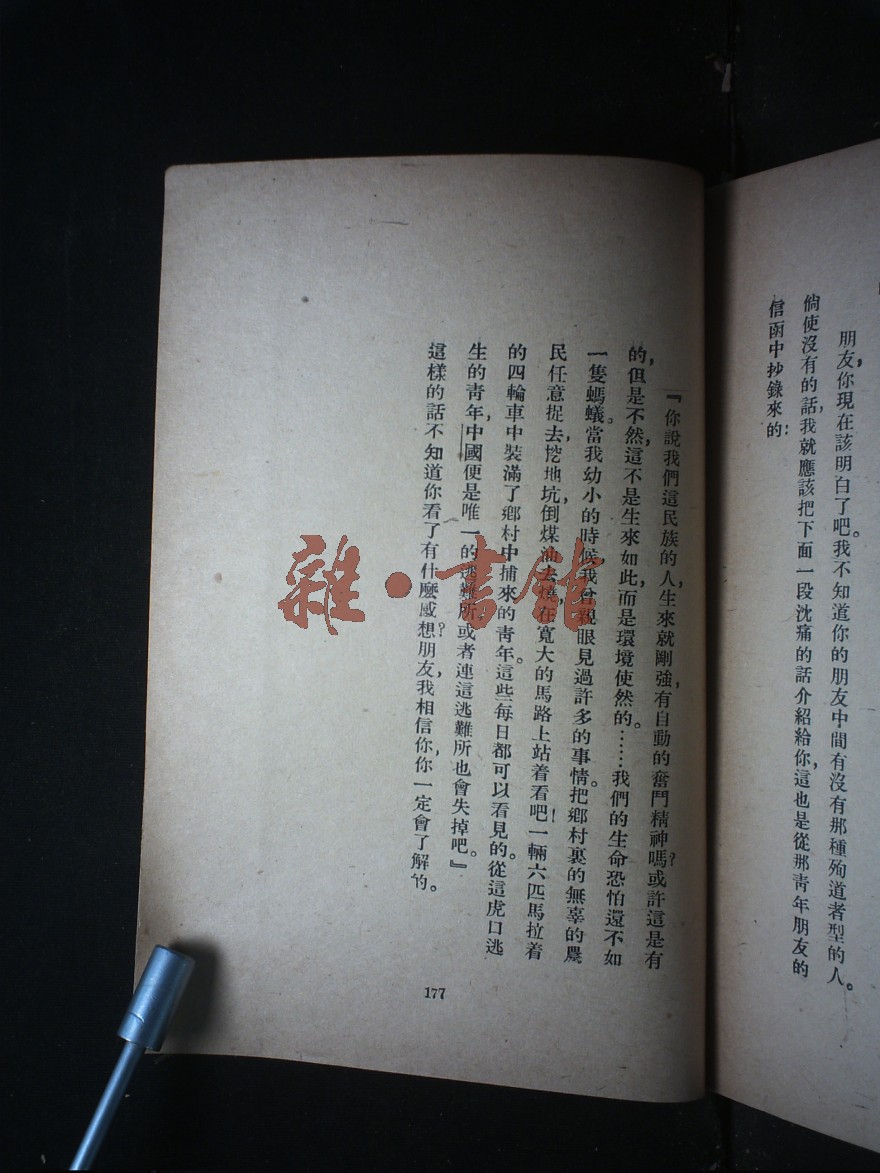 朋友，你現在該明白了吧。我不知道你的朋友中間有沒有那種殉道者型的人。
倘使沒有的話，我就應該把下面一段沈痛的話介紹給你，這也是從那靑年朋友的
信函中抄錄來的：
『你說我們這民族的人，生來就剛強，有自動的奮鬥精神嗎？或許這是有
的，但是不然，這不是生來如此，而是環境使然的。……我們的生命恐怕還不如
一隻螞蟻。當我幼小的時候我曾親眼見過許多的事情。把鄉村裏的無辜的農
民任意捉去，挖地坑，倒煤油去燒，在寬大的馬路上站着看吧！一輛六匹馬拉着
的四輪車中裝滿了鄉村中捕來的靑年。這些每日都可以看見的。從這虎口逃
生的靑年，中國便是唯一的逃難所，或者連這逃難所也會失掉吧。』
這樣的話不知道你看了有什麼感想？朋友，我相信你，你一定會了解的。
177
雜·書館